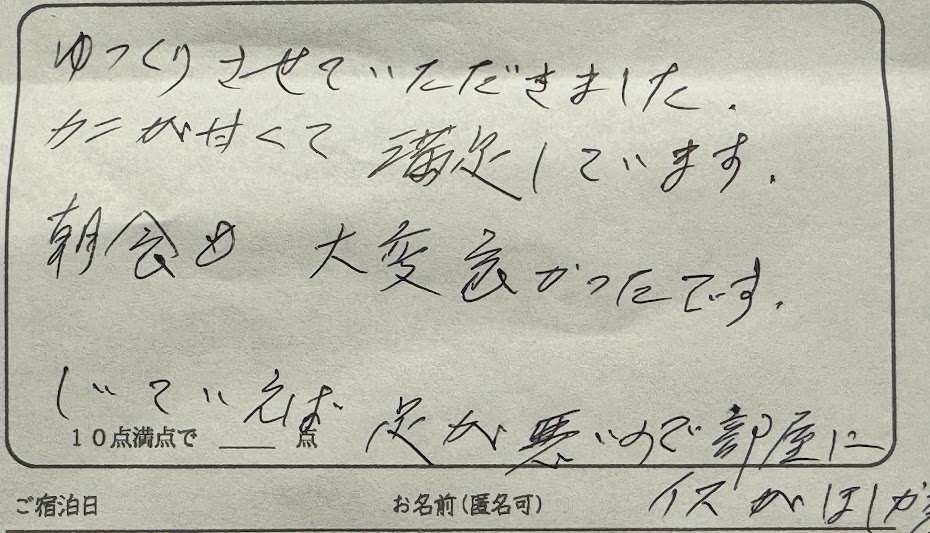 ゆっくりさせていただきました.
カニが甘くて 満足しています.
朝食も 大変良かったです.
しいていえば 足が悪いので部屋に
イスがほしか
10点満点で ____ 点
ご宿泊日 お名前(匿名可)